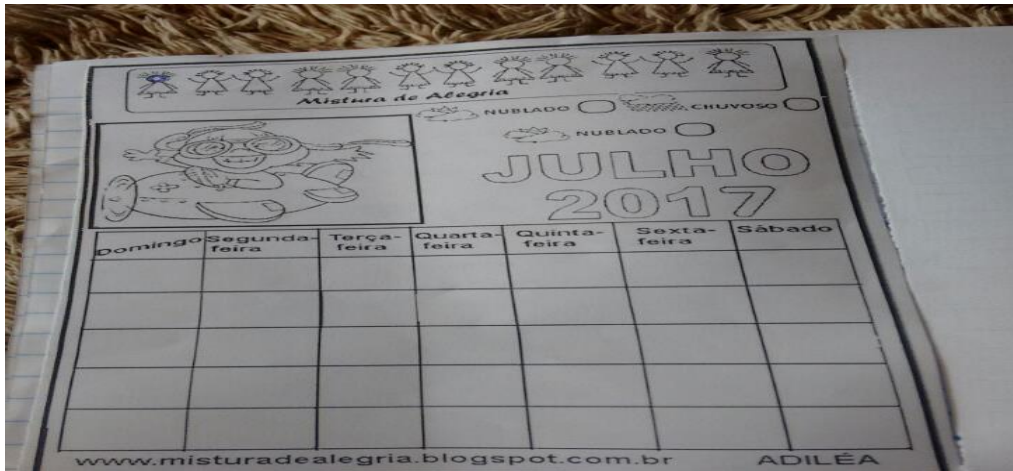 Mistura de Alegria
NUBLADO CHUVOSO
NUBLADO
JULHO
2017
Domingo Segunda-feira Terça-feira Quarta-feira Quinta-feira Sexta-feira Sábado
www.misturadealegria.blogspot.com.br ADILÉA